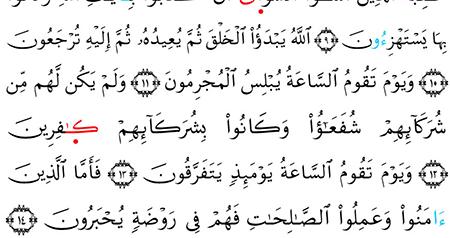 بِهَا يَسْتَهْزِءُونَ ٩ اَ۬للَّهُ يَبْدَؤُاْ اُ۬لْخَلْقَ ثُمَّ يُعِيدُهُۥ ثُمَّ إِلَيْهِ تُرْجَعُونَ
١٠ وَيَوْمَ تَقُومُ اُ۬لسَّاعَةُ يُبْلِسُ اُ۬لْمُجْرِمُونَ ١١ وَلَمْ يَكُن لَّهُم مِّن
شُرَكَآئِهِمْ شُفَعَٰٓؤُاْ وَكَانُواْ بِشُرَكَآئِهِمْ كَٰفِرِينَ
١٢ وَيَوْمَ تَقُومُ اُ۬لسَّاعَةُ يَوْمَئِذٍ يَتَفَرَّقُونَ ١٣ فَأَمَّا اَ۬لَّذِينَ
ءَامَنُواْ وَعَمِلُواْ اُ۬لصَّٰلِحَٰتِ فَهُمْ فِى رَوْضَةٍ يُحْبَرُونَ ١٤